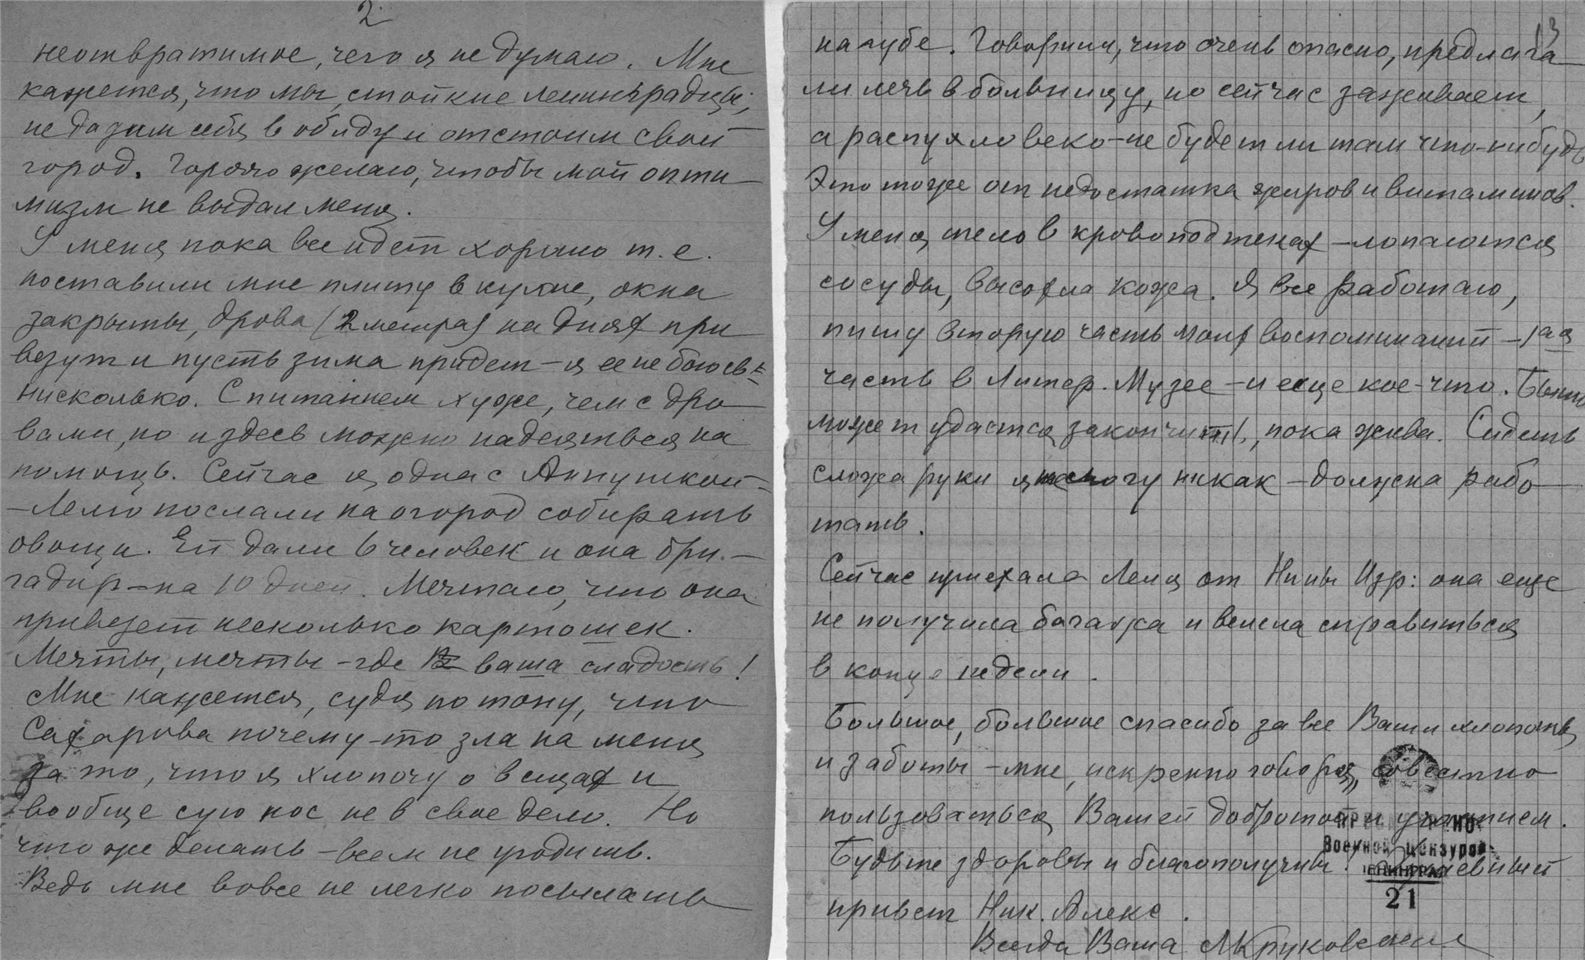 2
неотвратимое, чего я не думаю. Мне
кажется, что мы, стойкие ленинградцы,
не дадим себя в обиду и отстоим свой
город. Горячо желаю, чтобы мой опти-
мизм не выдал меня.
У меня пока все идет хорошо т. е.
поставили мне плиту в кухне, окна
закрыты, дрова (2 метра) на днях при
везут и пусть зима придет – я ее не боюсь
нисколько. С питанием хуже, чем с дро-
вами, но и здесь можно надеяться на
помощь. Сейчас я одна с Аннушкой –
– Лелю послали на огород собирать
овощи. Ей дали 6 человек и она бри-
гадир – на 10 дней. Мечтаю, что она
привезет несколько картошек.
Мечты, мечты – где ваша сладость!
Мне кажется, судя по тону, что
Сахарова почему-то зла на меня
за то, что я хлопочу о вещах и
вообще сую нос не в свое дело. Но
что же делать – всем не угодишь.
Ведь мне вовсе не легко посылать
13
на губе. Говорили, что очень опасно, предлага
ли лечь в больницу, но сейчас заживает,
а распухло веко – не будет ли там что-нибудь
Это тоже от недостатка жиров и витаминов.
У меня тело в кровоподтеках – лопаются
сосуды, высохла кожа. Я все работаю,
пишу вторую часть моих воспоминаний – 1ая
часть в Литер. Музее – и еще кое-что. Быть
может удастся закончить, пока жива. Сидеть
сложа руки я не могу никак – должна рабо-
тать.
Сейчас приехала Леля от Нины Изр: она еще
не получила багажа и велела справиться
в конце недели.
Большое, большое спасибо за все Ваши хлопоты
и заботы – мне, искренно говоря, совестно
пользоваться Вашей добротой и участием.
Будьте здоровы и благополучны!
привет Ник. Алекс.
Всегда Ваша МКруковская
Военной Цензурой
ЛЕНИНГРАД
21